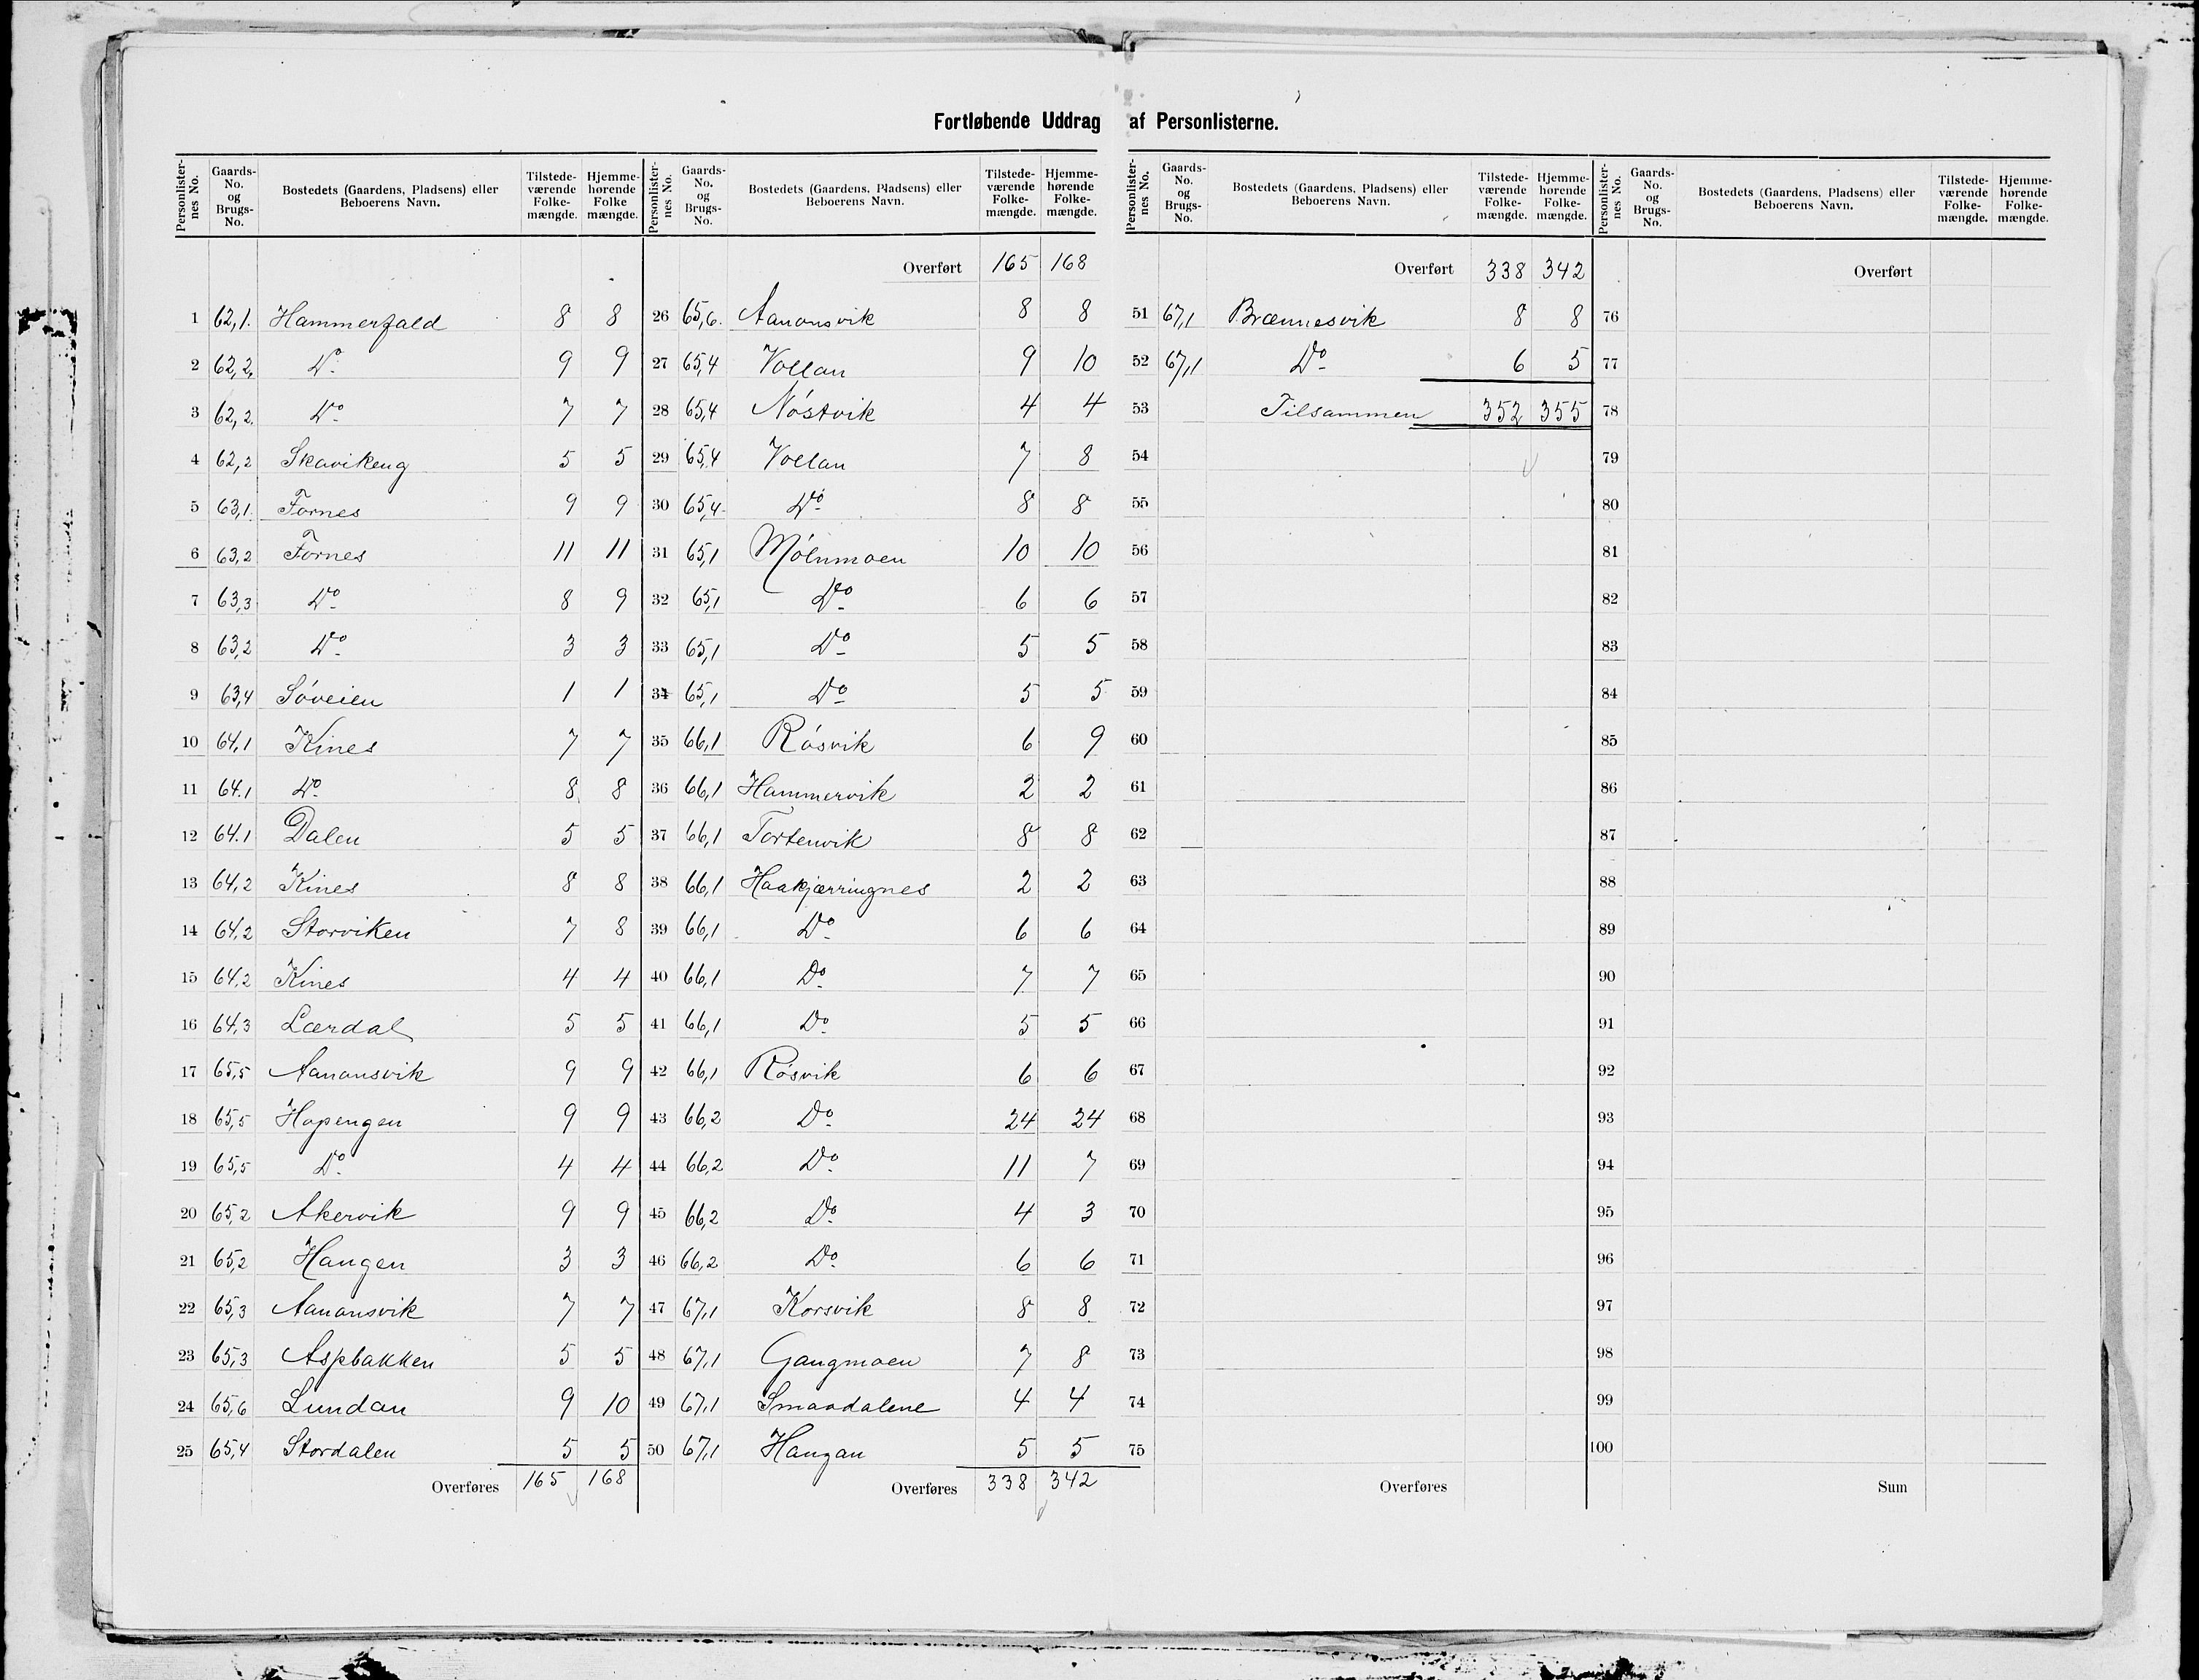 Fortløbende Uddrag af Personlisterne.
Personlister-nes No. Gaards-No. og Brugs-No. Bostedets (Gaardens, Pladsens) eller Beboerens Navn. Tilstede-værende Folke-mængde. Hjemme-hørende Folke mængde.
1 62,1. Hammerfald 8 8
2 62,2. Do 9 9
3 62,2. Do 7 7
4 62,2 Skavikeng 5 5
5 63,1. Fornes 9 9
6 63,2 Fornes 11 11
7 63,3 Do 8 9
8 63,2 Do 3 3
9 63,4 Søveien 1 1
10 64,1 Kines 7 7
11 64.1 Do 8 8
12 64.1 Dalen 5 5
13 64,2 Kines 8 8
14 64,2 Storviken 7 8
15 64,2 Kines 4 4
16 64,3 Lærdal 5 5
17 65,5 Aanonsvik 9 9
18 65,5 Hopengen 9 9
19 65,5 Do 4 4
20 65,2 Akervik 9 9
21 65,2 Haugen 3 3
22 65,3 Aanonsvik 7 7
23 65,3 Aspbakken 5 5
24 65,6 Lundan 9 10
25 65,4 Stordalen 5 5
Overføres 165 168
Personlister-nes No. Gaards-No. og Brugs-No. Bostedets (Gaardens, Pladsens) eller Beboerens Navn. Tilstede-værende Folke-mængde. Hjemme-hørende Folke-mængde.
Overført 165 168
26 65,6. Aanonsvik 8 8
27 65,4 Vollan 9 10
28 65,4 Nøstvik 4 4
29 65,4 Vollan 7 8
30 65,4 Do 8 8
31 65,1 Mølnmoen 10 10
32 65,1 Do 6 6
33 65,1 Do 5 5
34 65,1 Do 5 5
35 66,1 Røsvik 6 9
36 66,1 Hammervik 2 2
37 66,1 Tortenvik 8 8
38 66,1 Haakjærringnes 2 2
39 66,1 Do 6 6
40 66,1 Do 7 7
41 66,1 Do 5 5
42 66,1 Røsvik 6 6
43 66,2 Do 24 24
44 66,2 Do 11 7
45 66,2 Do 4 3
46 66,2 Do 6 6
47 67,1 Korsvik 8 8
48 67,1 Gangmoen 7 8
49 67,1 Smaadalene 4 4
50 67,1 Haugan 5 5
Overføres 338 342
Personlister-nes No. Gaards-No. og Brugs-No. Bostedets (Gaardens, Pladsens) eller Beboerens Navn. Tilstede-værende Folke-mængde. Hjemme-hørende Folke-mængde.
Overført 338 342
51 67,1 Brænnesvik 8 8
52 67,1 Do 6 5
53 Tilsammen 352 355
54
55
56
57
58
59
60
61
62
63
64
65
66
67
68
69
70
71
72
73
74
75
Overføres
Personlister-nes No. Gaards-No. og Brugs-No. Bostedets (Gaardens, Pladsens) eller Beboerens Navn. Tilstede-værende Folke-mængde. Hjemme-hørende Folke-mængde.
Overført
76
77
78
79
80
81
82
83
84
85
86
87
88
89
90
91
92
93
94
95
96
97
98
99
100
Sum